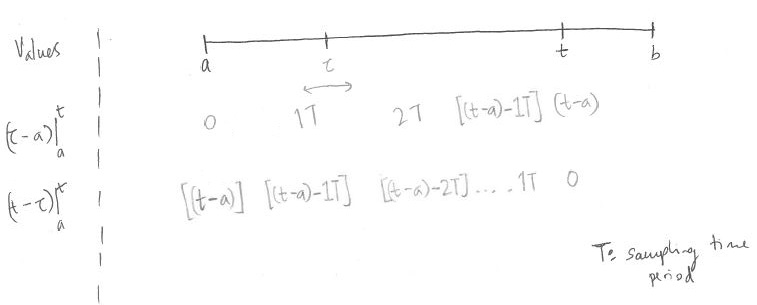 Values
a τ t b
(τ-a)|ₐᵗ 0 1T 2T [(t-a)-1T] (t-a)
(t-τ)|ₐᵗ [(t-a)] [(t-a)-1T] [(t-a)-2T] .... 1T 0
T: sampling time
period